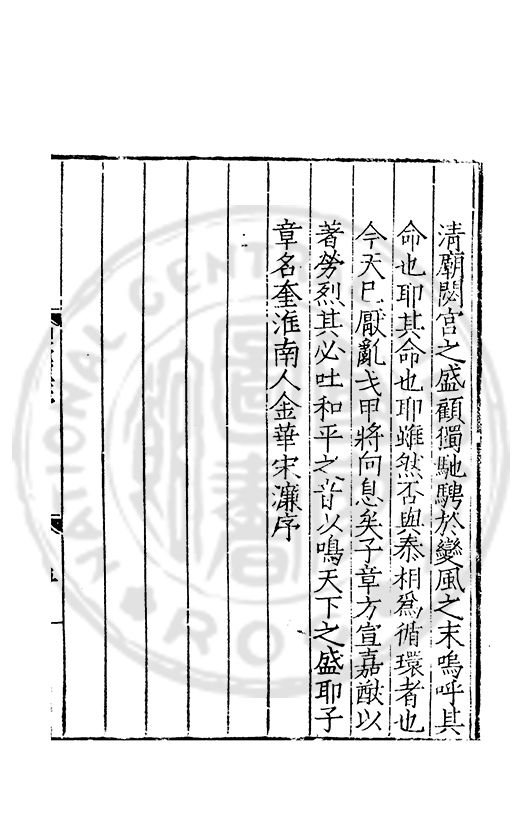 清廟閟宮之盛顧獨馳騁於變風之末嗚呼其
命也耶其命也耶雖然否與泰相爲循環者也
今天已厭亂戈甲將向息矣子章方宣嘉猷以
著勞烈其必吐和平之音以鳴天下之盛耶子
章名奎淮南人金華宋濂序